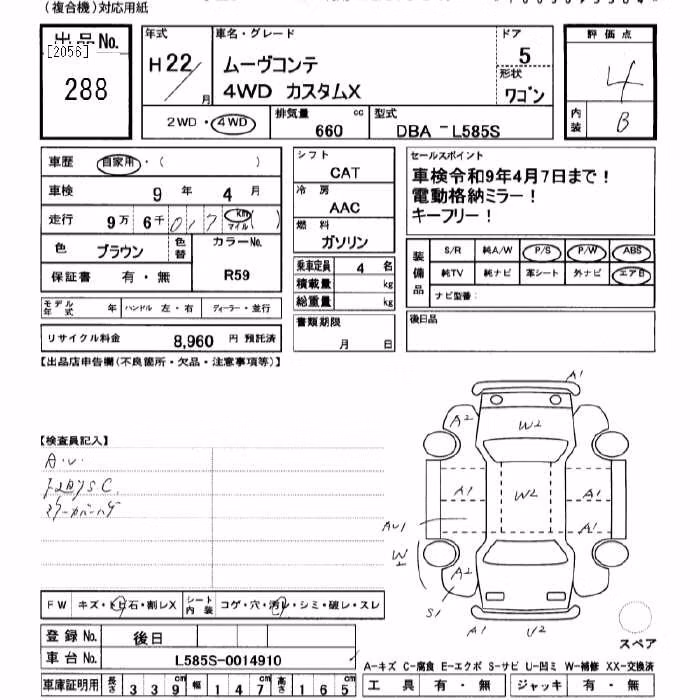 (複合機)対応用紙
出品No.
[2056]
288
年式
H22/
月
車名・グレード
ムーヴコンテ
4WD カスタムX
ドア
5
形状
ワゴン
2WD・4WD
排気量
cc
660
型式
DBA -L585S
評価点
4
内装
B
車歴 自家用・( )
車検 9年 4月
走行 9万 6千 017 km マイル ( )
色 ブラウン 色替
カラーNo.
R59
保証書 有・無
モデル年式 年 ハンドル 左・右 ディーラー・並行
リサイクル料金 8,960 円 預託済
シフト
CAT
冷房
AAC
燃料
ガソリン
乗車定員 4 名
積載量 kg
総重量 kg
書類期限
月 日
セールスポイント
車検令和9年4月7日まで!
電動格納ミラー!
キーフリー!
装備品
S/R 純A/W P/S P/W ABS
純TV 純ナビ 革シート 外ナビ エアB
ナビ型番:
後日品
【出品店申告欄(不良箇所・欠品・注意事項等)】
【検査員記入】
A.U.
A1
A2
W2
A1
W2
A1
AU1
A1
W
A2
S1
A1
U2
スペア
FW キズ・トビ石・割レX
シート内装 コゲ・穴・汚レ・シミ・破レ・スレ
登録No. 後日
車台No. L585S-0014910
車庫証明用 長さ 339cm 幅 147cm 高さ 165cm
A-キズ C-腐食 E-エクボ S-サビ U-凹ミ W-補修 XX-交換済
工具 有・無 ジャッキ 有・無